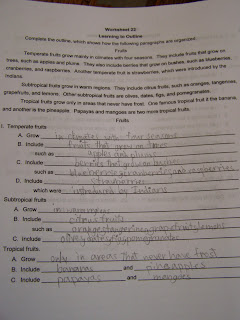 Worksheet 22:
Learning to Outline
Complete the outline, which shows how the following paragraphs are organized.
Fruits
Temperate fruits grow mainly in climates with four seasons. They include fruits that grow on
trees, such as apples and plums. They also include berries that grow on bushes, such as blueberries,
cranberries, and raspberries. Another temperate fruit is strawberries, which were introduced by the
Indians.
Subtropical fruits grow in warm regions. They include citrus fruits, such as oranges, tangerines,
grapefruits, and lemons. Other subtropical fruits are olives, dates, figs, and pomegranates.
Tropical fruits grow only in areas that never have frost. One famous tropical fruit is the banana,
and another is the pineapple. Papayas and mangoes are two more tropical fruits.
Fruits
I. Temperate fruits
A. Grow in climates with four seasons
B. Include fruits that grow on trees
such as apples and plums
C. Include berries that grow on bushes
such as blueberries cranberries and raspberries
D. Include strawberries
which were introduced by Indians
Subtropical fruits
A. Grow in warm regions
B. Include citrus fruits
such as oranges, tangerines, grapefruits, lemons
C. Include olives, dates, figs, pomegranates
Tropical fruits.
A. Grow only in areas that never have frost
B. Include bananas and pineapples
C. Include papayas and mangoes